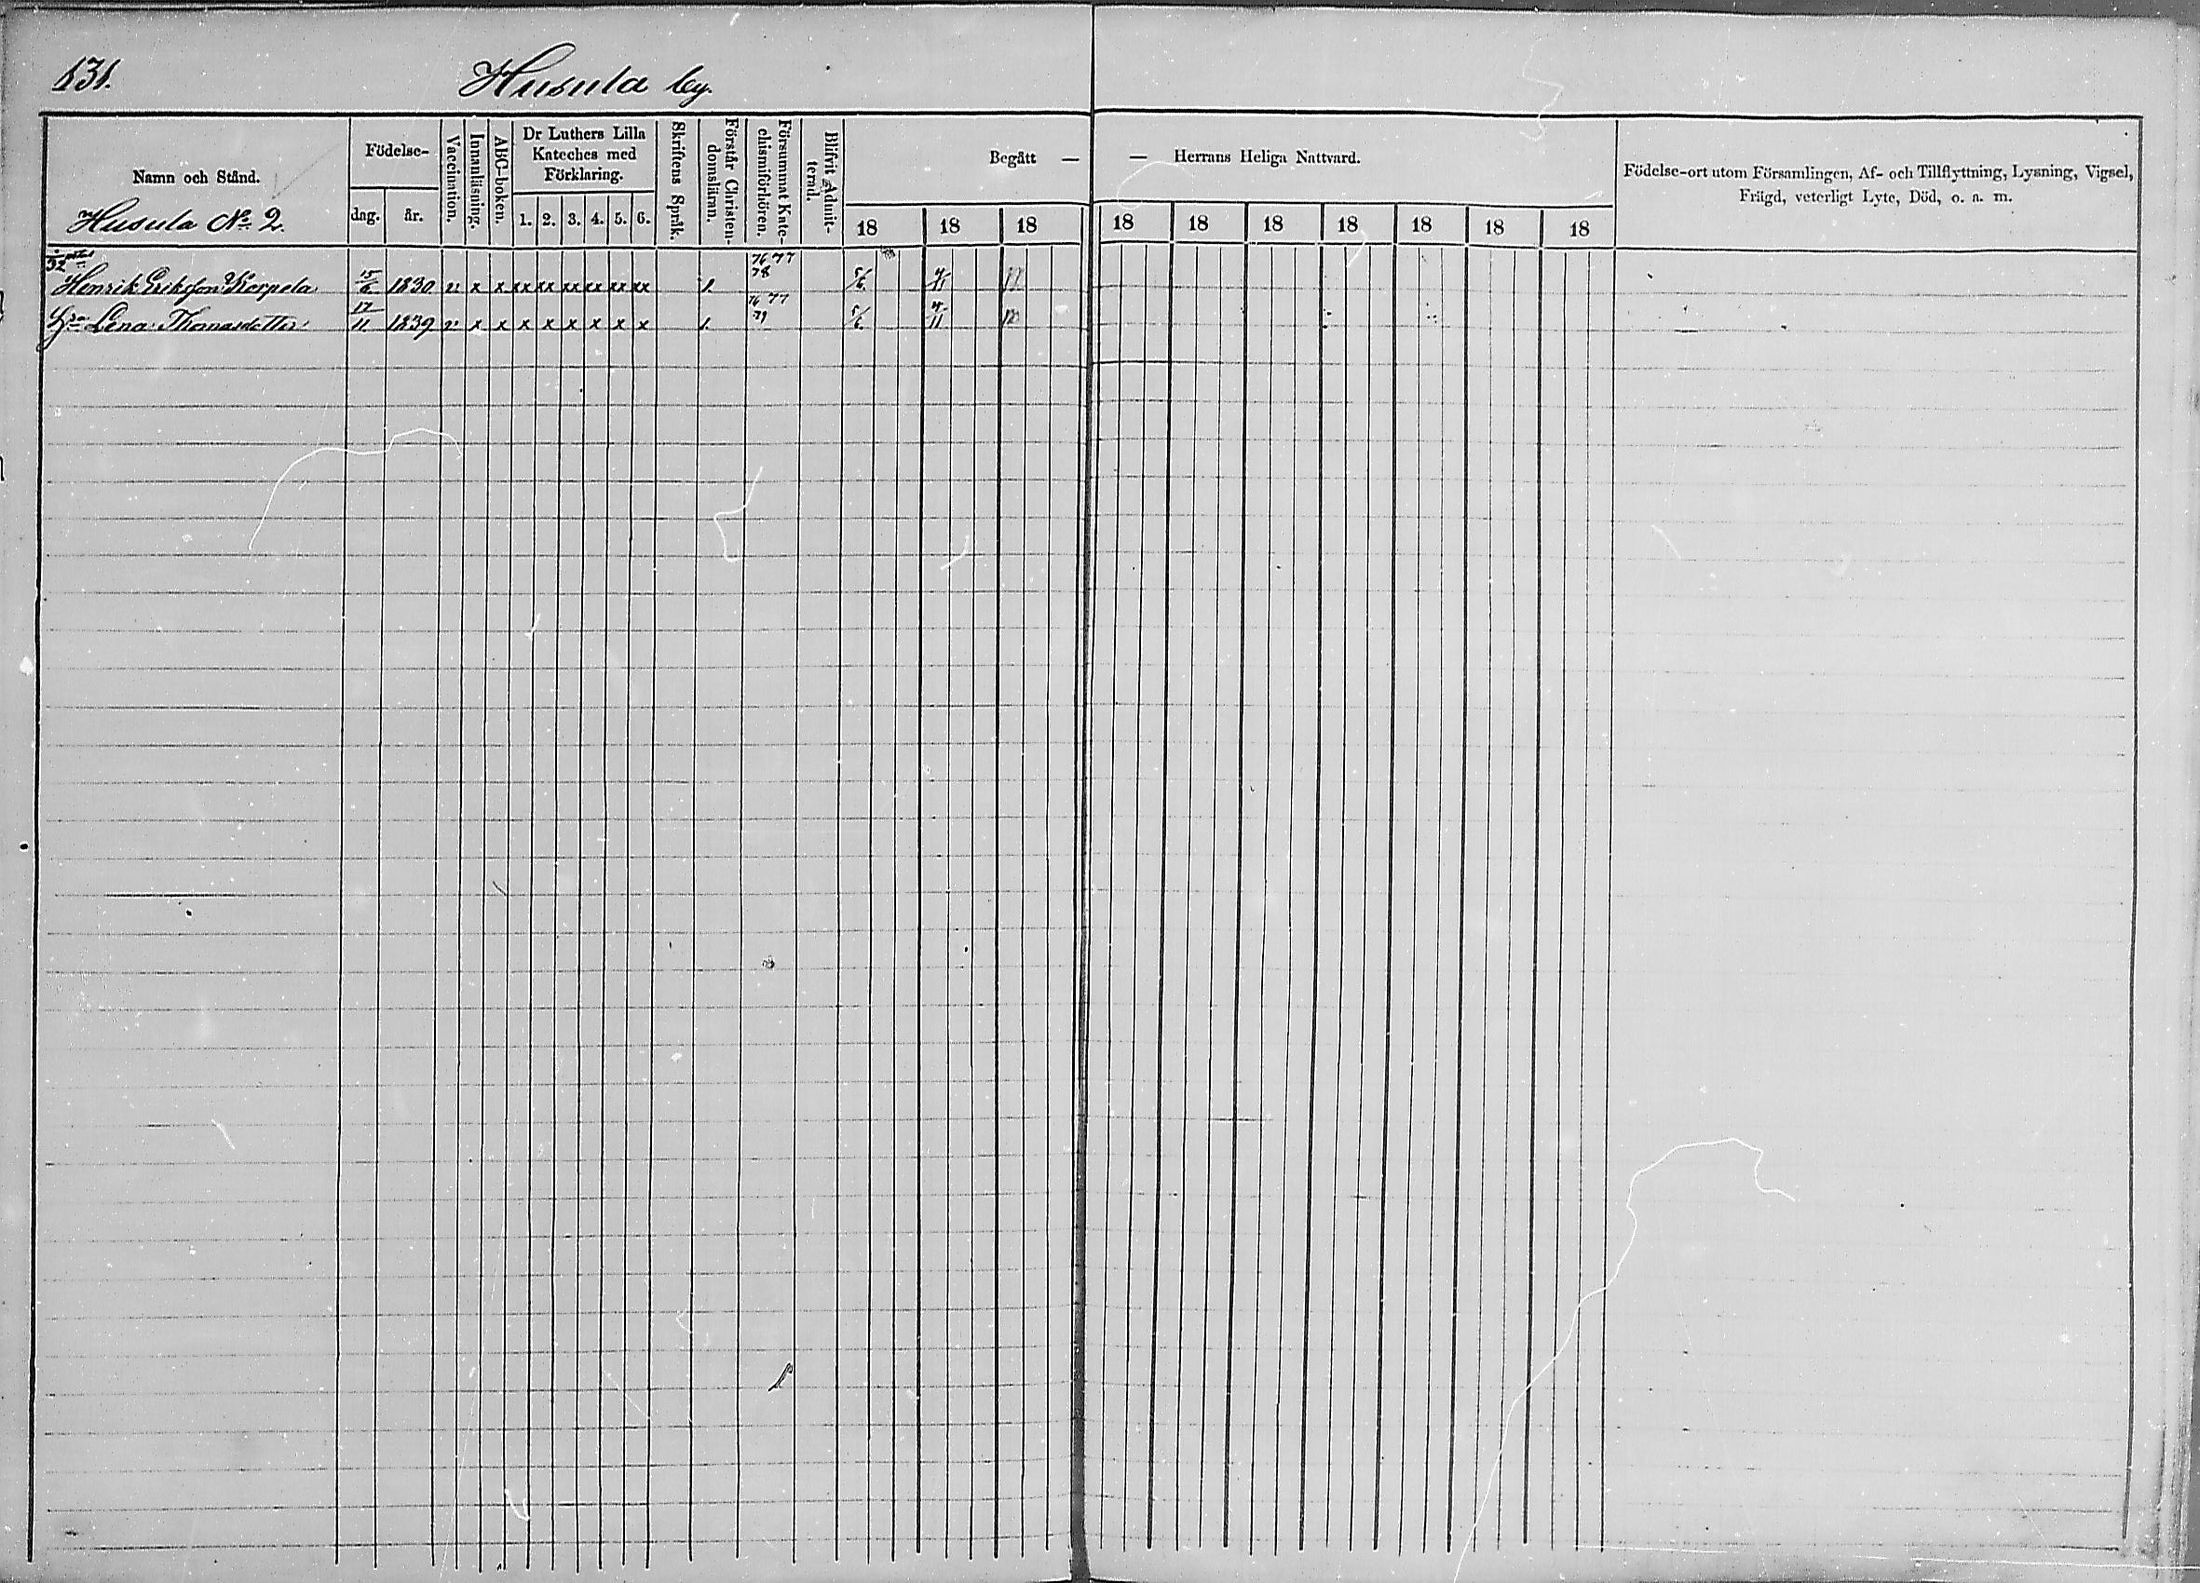 131.
Husula by.
Namn och Stånd.
Födelse-
dag. år.
Vaccination.
Innanläsning.
ABC-boken.
Dr Luthers Lilla
Kateches med
Förklaring.
1. 2. 3. 4. 5. 6.
Skriftens Språk.
Förstår Christen-
domsläran.
Försummat Kate-
chismiförhören.
Blifvit Admit-
terad.
Begått — — Herrans Heliga Nattvard.
18 18 18 18 18 18 18 18 18 18
Födelse-ort utom Församlingen, Af- och Tillflyttning, Lysning, Vigsel,
Frägd, veterligt Lyte, Död, o. a. m.
Husula No 2.
76 77
Henrik Eriksson Korpela 15/6 1830 v x x xx xx xx xx xx xx 1. 78 5/6
76 77
Hu Lena Thomasdotter 17/11 1839 v x x x x x x x x 1. 79 5/6